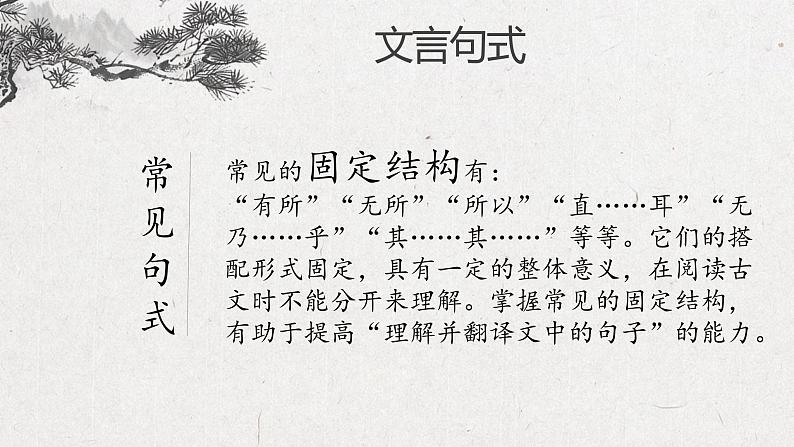 文言句式
常见句式
常见的固定结构有：
“有所”“无所”“所以”“直……耳”“无
乃……乎”“其……其……”等等。它们的搭
配形式固定，具有一定的整体意义，在阅读古
文时不能分开来理解。掌握常见的固定结构，
有助于提高“理解并翻译文中的句子”的能力。